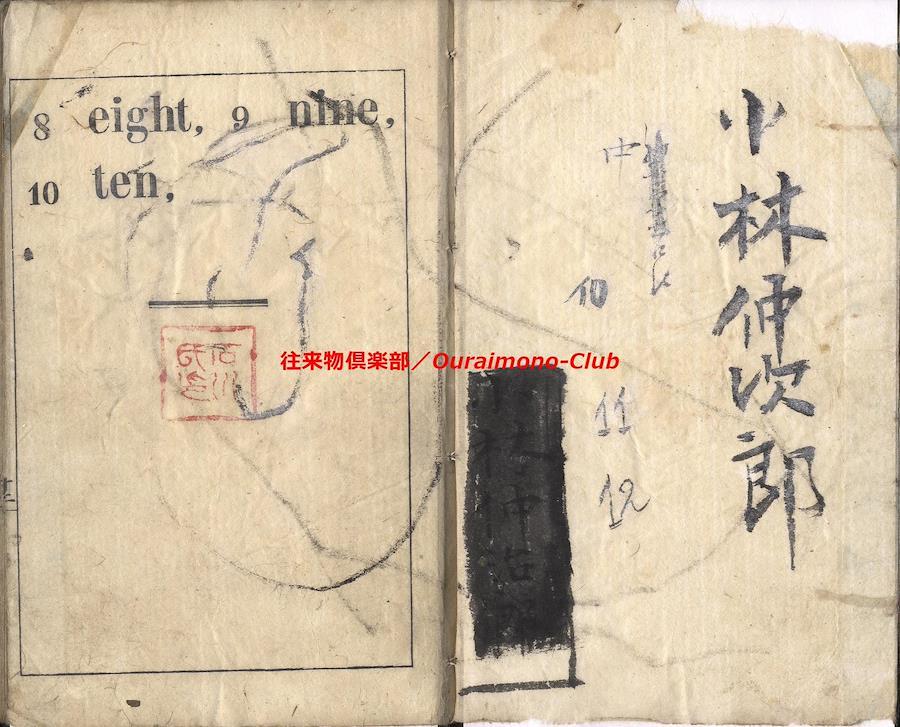 8 eight, 9 nine,
10 ten,
石川
氏印
往来物倶楽部／Ouraimono-Club
小林仲次郎
中
10
11
12
林仲治郎